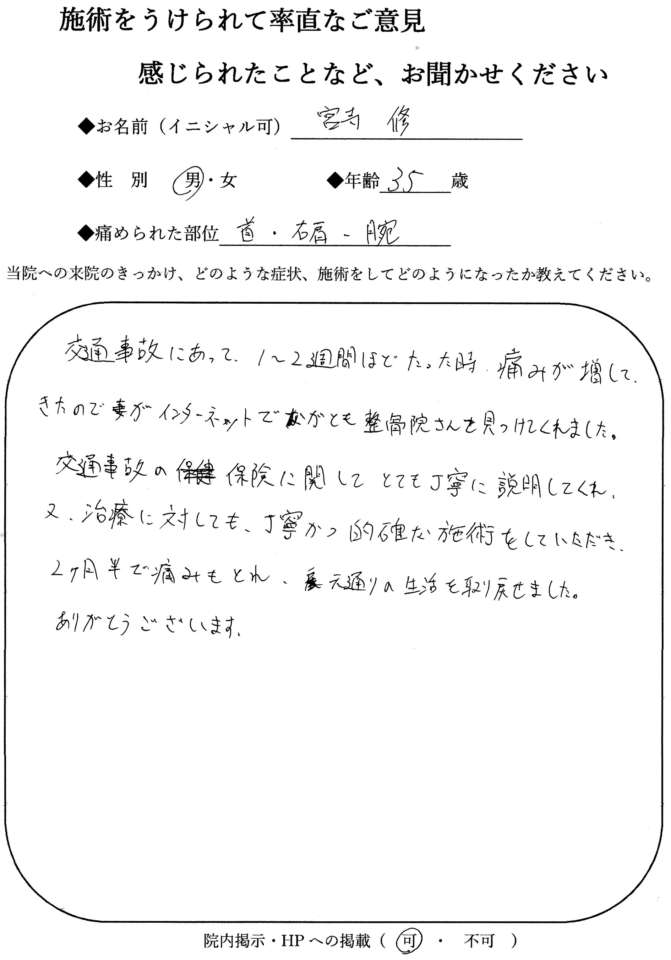 施術をうけられて率直なご意見
感じられたことなど、お聞かせください
◆お名前（イニシャル可） 宮寺 修
◆性 別 男・女 ◆年齢 35 歳
◆痛められた部位 首・右肩・腕
当院への来院のきっかけ、どのような症状、施術をしてどのようになったか教えてください。
交通事故にあって、1～2週間ほどたった時、痛みが増して、
きたので妻がインターネットでながとも整骨院さんを見つけてくれました。
交通事故の保険に関してとても丁寧に説明してくれ、
又、治療に対しても、丁寧かつ的確な施術をしていただき、
2ヶ月半で痛みもとれ、元通りの生活を取り戻せました。
ありがとうございます。
院内掲示・HPへの掲載（ 可 ・ 不可 ）